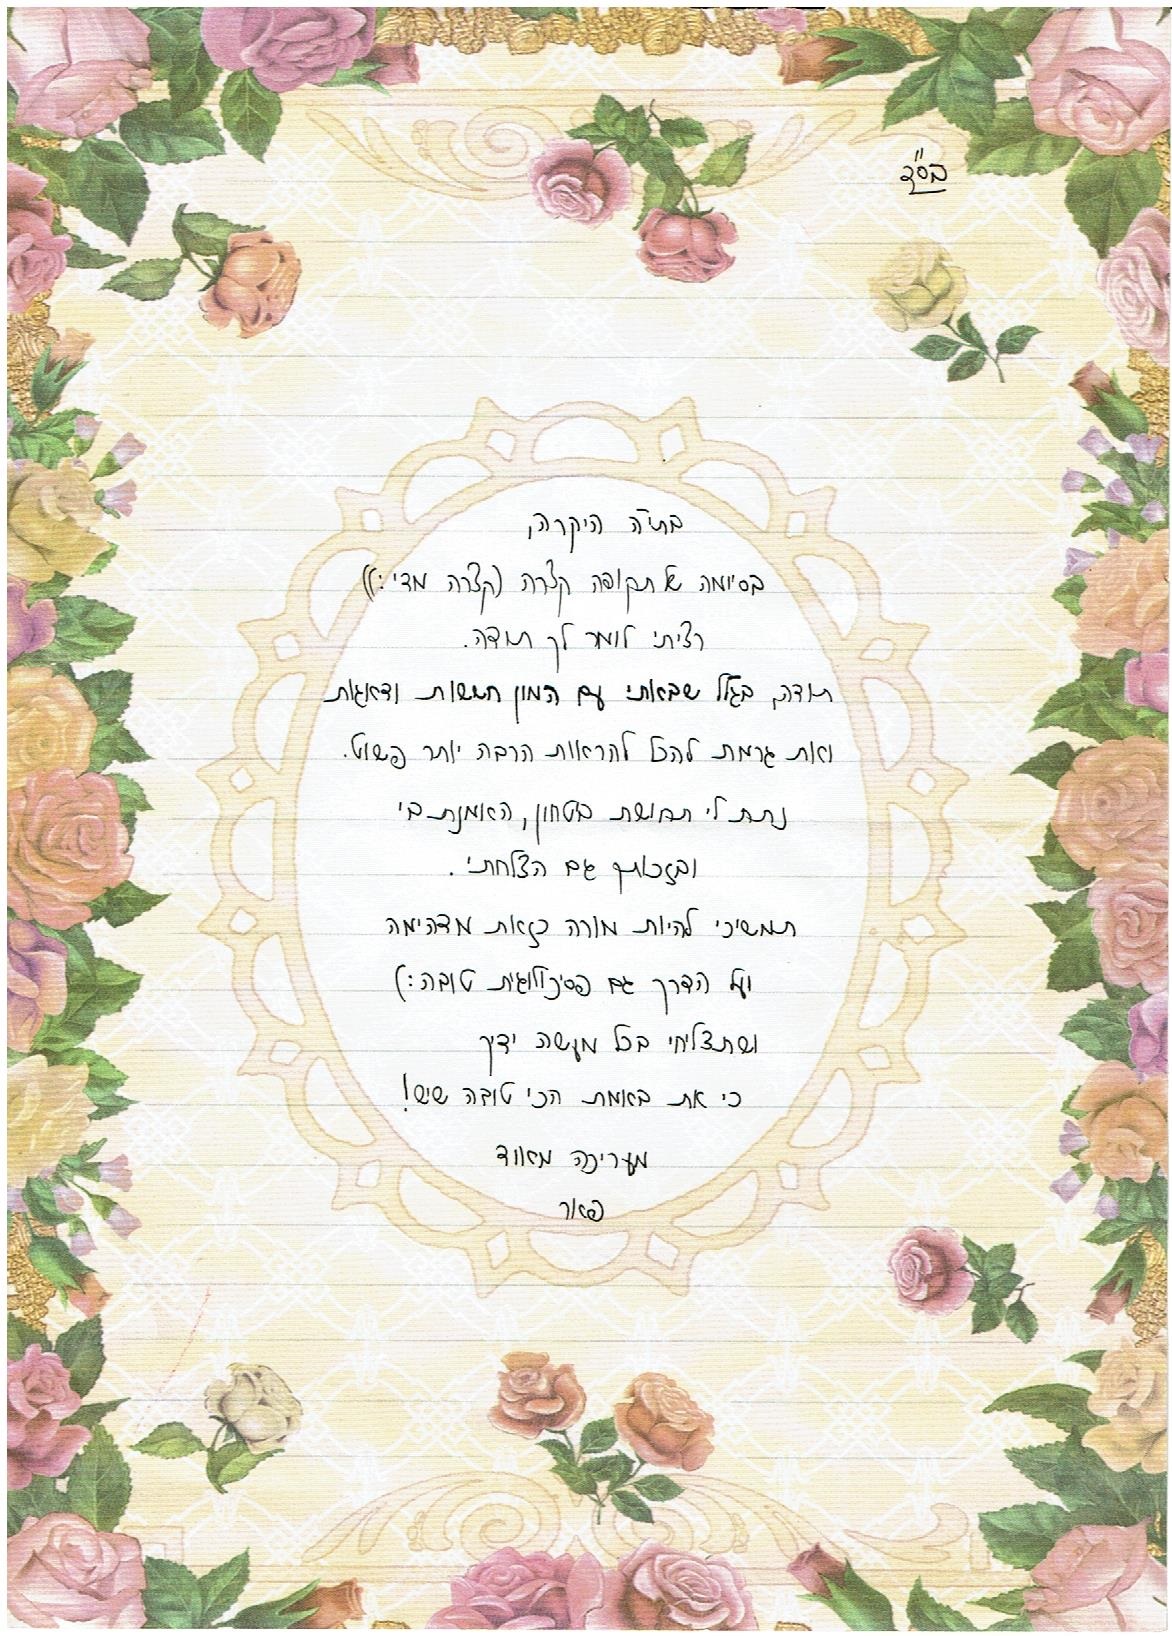 בס"ד
בתיה היקרה,
בסיומה של תקופה קצרה (קצרה מדי :))
רציתי לומר לך תודה.
תודה, בגלל שבאתי עם המון חששות ודאגות
ואת גרמת להכל להראות הרבה יותר פשוט.
נתת לי תחושת בטחון, האמנת בי
ובזכותך גם הצלחתי.
תמשיכי להיות מורה כזאת מדהימה
ועל הדרך גם פסיכולוגית טובה :)
ושתצליחי בכל מעשה ידיך
כי את באמת הכי טובה שיש!
מעריכה מאווד